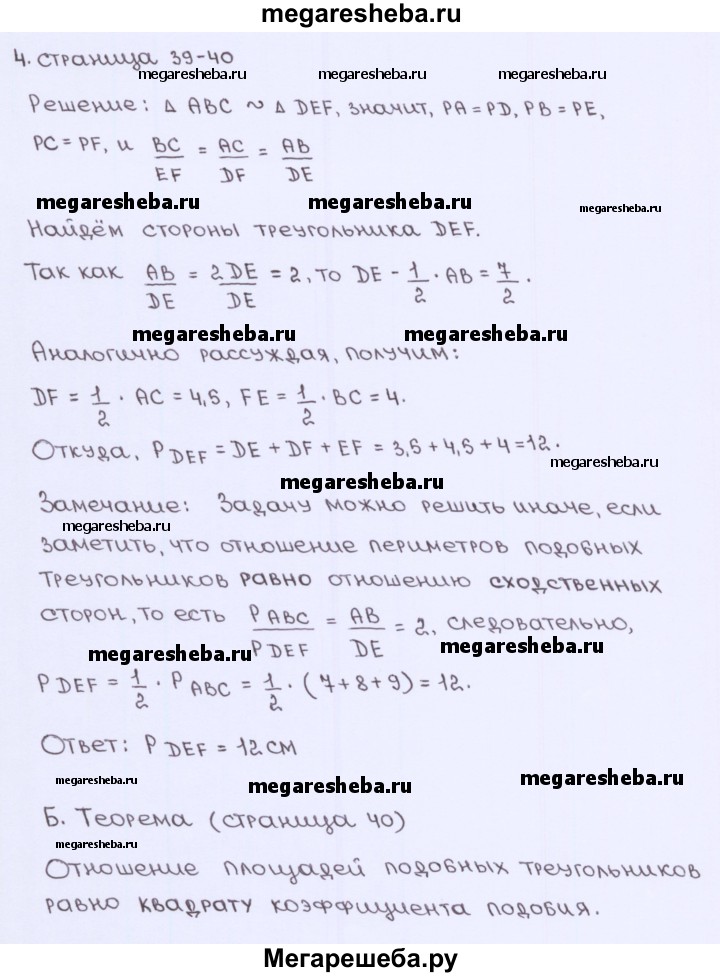 megaresheba.ru
4. страница 39-40
megaresheba.ru megaresheba.ru megaresheba.ru
Решение: Δ ABC ~ Δ DEF, значит, PA = PD, PB = PE,
PC = PF, и BC/EF = AC/DF = AB/DE
megaresheba.ru megaresheba.ru megaresheba.ru
Найдём стороны треугольника DEF.
Так как AB/DE = 2DE/DE = 2, то DE - 1/2 · AB = 7/2.
megaresheba.ru megaresheba.ru
Аналогично рассуждая, получим:
DF = 1/2 · AC = 4,5, FE = 1/2 · BC = 4.
Откуда, P DEF = DE + DF + EF = 3,5 + 4,5 + 4 = 12.
megaresheba.ru
megaresheba.ru
Замечание: Задачу можно решить иначе, если
megaresheba.ru
заметить, что отношение периметров подобных
треугольников равно отношению сходственных
сторон, то есть P ABC/P DEF = AB/DE = 2, следовательно,
megaresheba.ru megaresheba.ru
P DEF = 1/2 · P ABC = 1/2 · (7+8+9) = 12.
Ответ: P DEF = 12 см
megaresheba.ru megaresheba.ru megaresheba.ru
Б. Теорема (страница 40)
megaresheba.ru
Отношение площадей подобных треугольников
равно квадрату коэффициента подобия.
Мегарешеба.ру